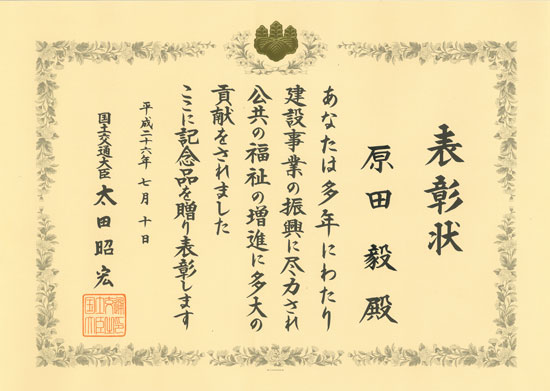 表彰状
原田毅殿
あなたは多年にわたり
建設事業の振興に尽力され
公共の福祉の増進に多大の
貢献をされました
ここに記念品を贈り表彰します
平成二十六年七月十日
国土交通大臣 太田昭宏